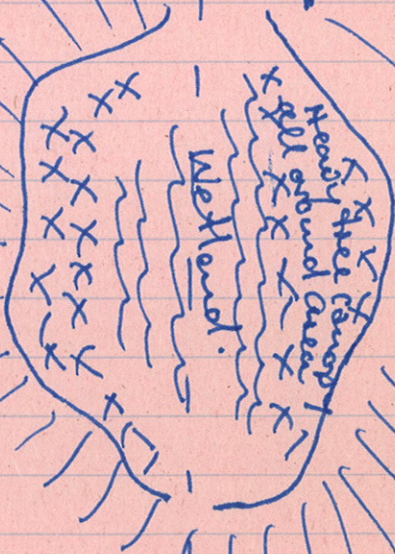 Heavy tree canopy
all around area
Wetland.